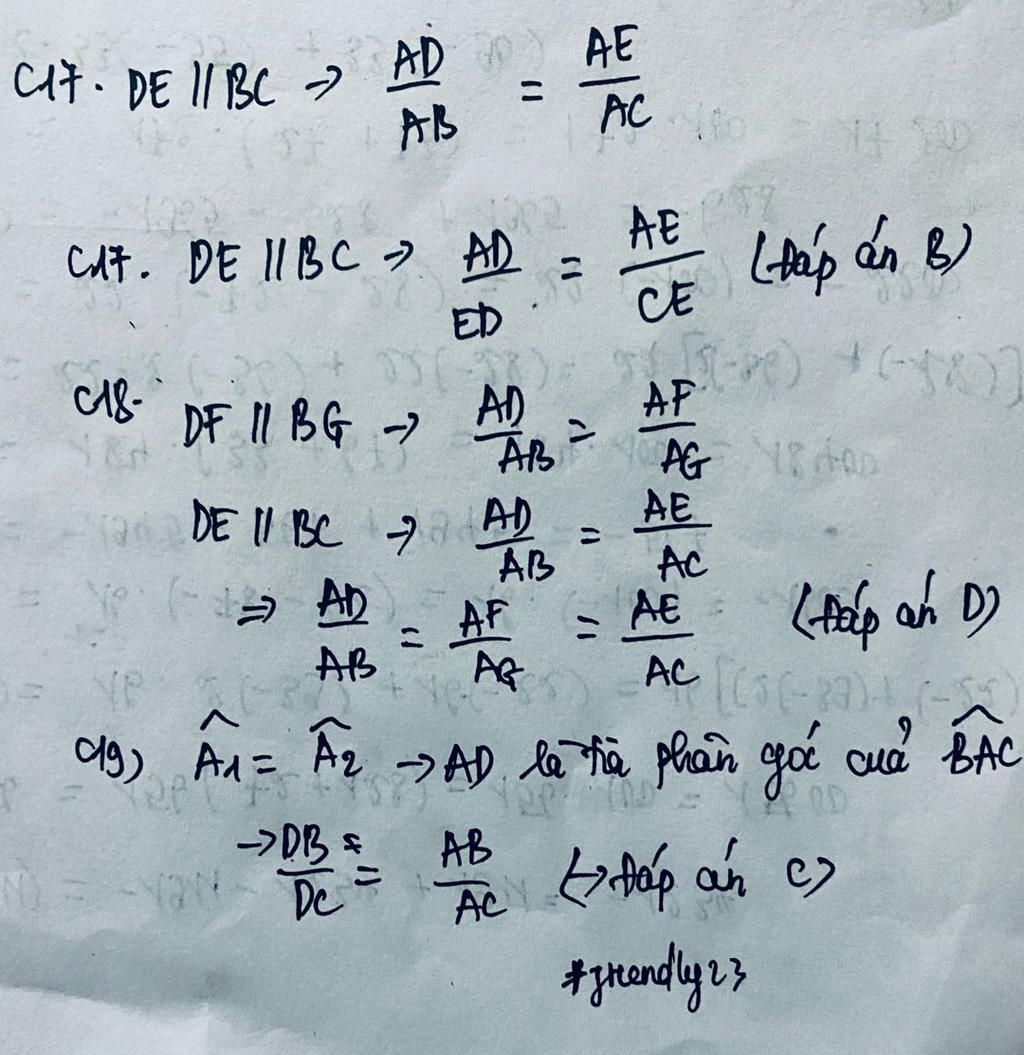 C17. DE // BC → AD/AB = AE/AC
C17. DE // BC → AD/ED = AE/CE (Đáp án B)
C18. DF // BG → AD/AB = AF/AG
DE // BC → AD/AB = AE/AC
⇒ AD/AB = AF/AG = AE/AC (Đáp án D)
C19) Â1 = Â2 → AD là tia phân góc của BAC
→ DB/DC = AB/AC (→ Đáp án C)